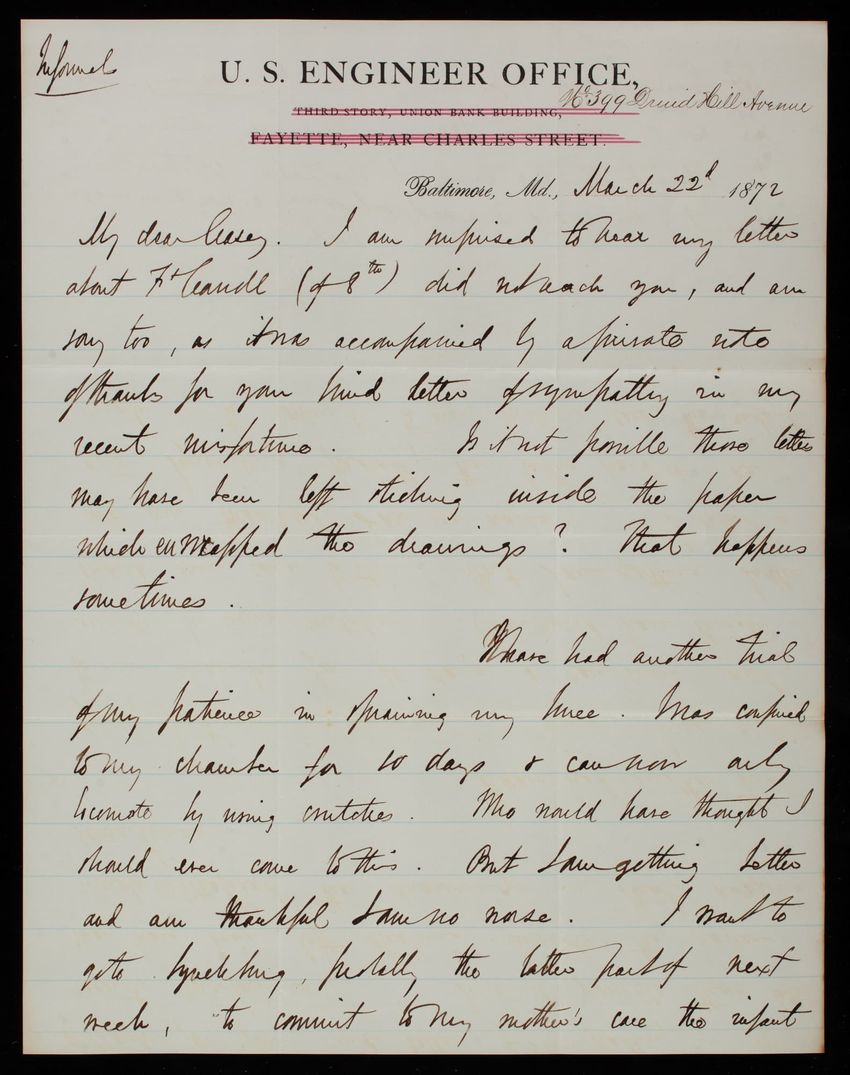 Informal
U. S. ENGINEER OFFICE,
No 399 Druid Hill Avenue
THIRD STORY, UNION BANK BUILDING,
FAYETTE, NEAR CHARLES STREET.
Baltimore, Md., March 22d 1872
My dear Casey. I am surprised to hear my letter
about Ft (of 8th) did not reach you, and am
sorry too, as it was accompanied by a private note
of thanks for your kind letter of sympathy in my
recent misfortune. Is it not possible those letters
may have been left sticking inside the paper
which enwrapped the drawings? That happens
sometimes.
I have had another trial
of my patience in spraining my knee. I was confined
to my chamber for 10 days & can now only
locomote by using crutches. Who would have thought I
should ever come to this. But I am getting better
and am thankful I am no worse. I want to
go to Lynchburg, probably the latter part of next
week, to commit to my mother's care the infant